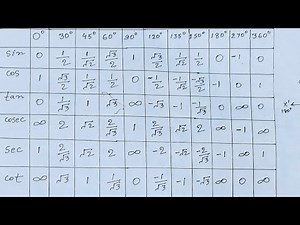 0° 30° 45° 60° 90° 120° 135° 150° 180° 270° 360°
sin 0 1/2 1/√2 √3/2 1 √3/2 1/√2 1/2 0 -1 0
cos 1 √3/2 1/√2 1/2 0 -1/2 -1/√2 -√3/2 -1 0 1
tan 0 1/√3 1 √3 ∞ -√3 -1 -1/√3 0 ∞ 0
cosec ∞ 2 √2 2/√3 1 2/√3 √2 2 ∞ -1 ∞
sec 1 2/√3 √2 2 ∞ -2 -√2 -2/√3 -1 ∞ 1
cot ∞ √3 1 1/√3 0 -1/√3 -1 -√3 ∞ 0 ∞